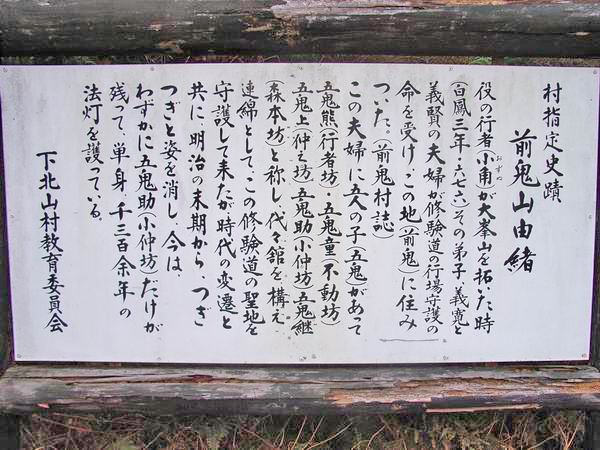 村指定史蹟
前鬼山由緒
役の行者(小角おずぬ)が大峯山を拓いた時
(白鳳三年・六七六)その弟子、義寛と
義賢の夫婦が修験道の行場守護の
命を受け、この地(前鬼)に住み
ついた。(前鬼村誌)
この夫婦に五人の子(五鬼)があって
五鬼熊(行者坊)五鬼童(不動坊)
五鬼上(仲之坊)五鬼助(小仲坊)五鬼継
(森本坊)と称し、代々舘を構え
連綿として、この修験道の聖地を
守護して来たが時代の変遷と
共に、明治の末期から、つぎ
つぎと姿を消し、今は、
わずかに五鬼助(小仲坊)だけが
残って、単身、千三百余年の
法灯を護っている。
下北山村教育委員会